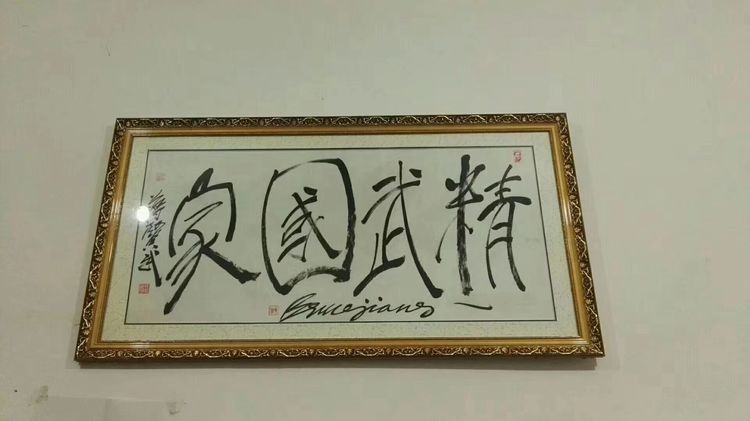 精武國家
Brucejiang